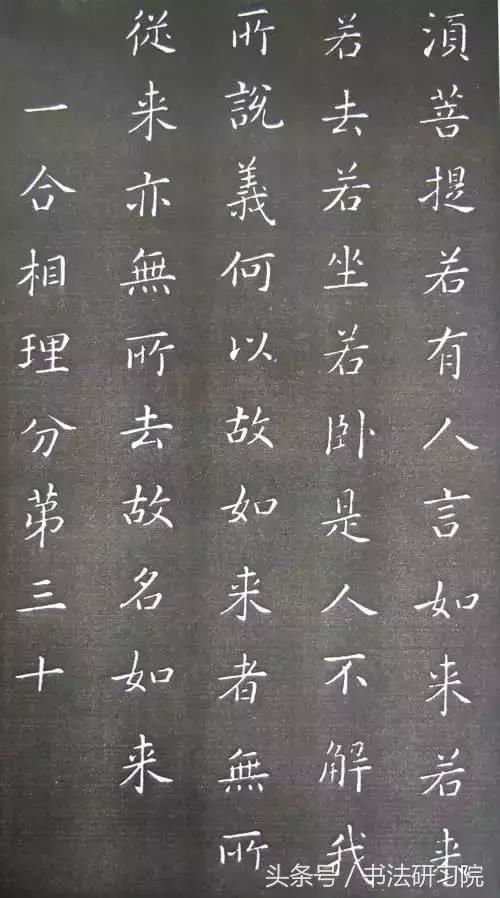 湏菩提若有人言如来若来
若去若坐若卧是人不解我
所說義何以故如来者無所
從来亦無所去故名如来
一合相理分苐三十
头条号/书法研习院